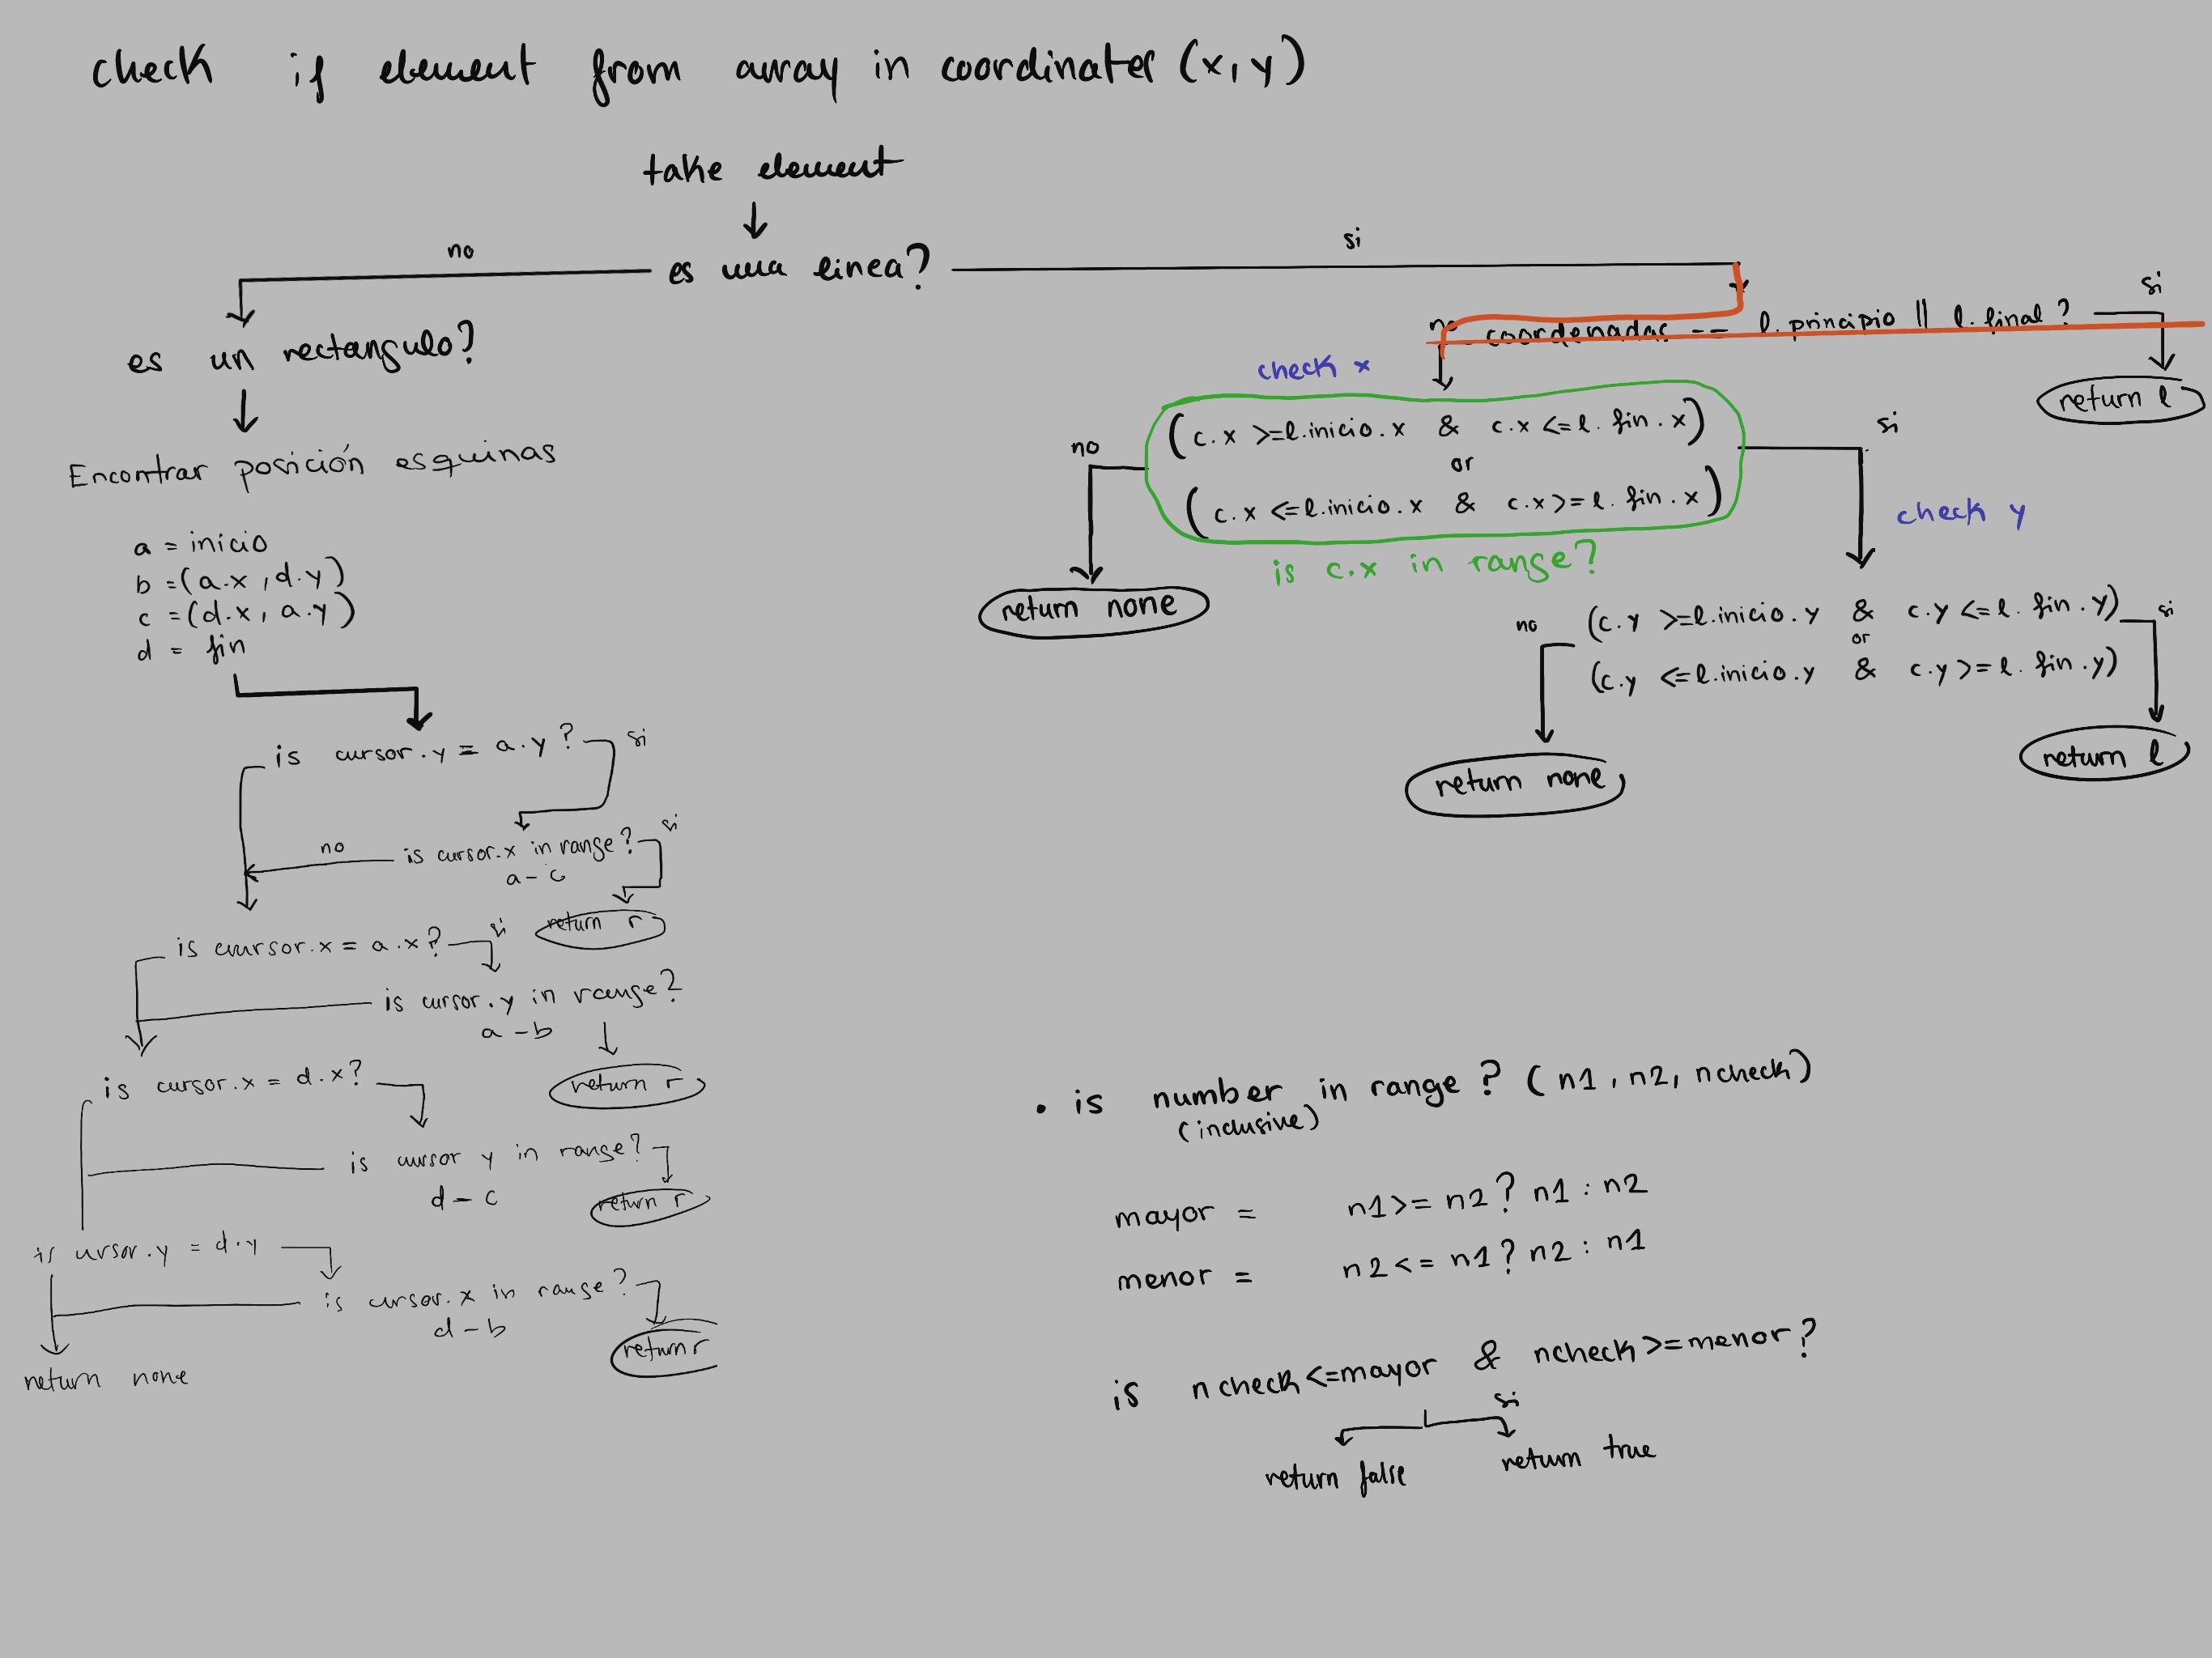 check if element from array in coordinates (x, y)
take element
no
es una linea?
si
es un rectangulo?
Encontrar posición esquinas
a = inicio
b =(a.x , d.y)
c =(d.x , a.y)
d = fin
is cursor.y = a.y ?
si
no
is cursor.x in range?
si
a - c
return r
is cuursor.x = a.x?
si
is cursor.y in range?
a - b
return r
is cursor.x = d.x?
is cursor y in range?
d - c
return r
is ursor.y = d.y
is cursor.x in range?
d - b
return r
return none
no coordenadas == l.principio || l.final ?
si
return l
check x
no
(c.x >=l.inicio.x & c.x <=l. fin.x)
or
(c.x <=l.inicio.x & c.x>=l. fin.x)
si
is c.x in range?
return none
check y
no
(c.y >=l.inicio.y & c.y <=l. fin.y)
or
(c.y <=l.inicio.y & c.y>=l. fin.y)
si
return none
return l
• is number in range? (n1, n2, ncheck)
(inclusive)
mayor = n1>= n2? n1 : n2
menor = n2<= n1? n2 : n1
is ncheck<=mayor & ncheck>=menor?
si
return false
return true